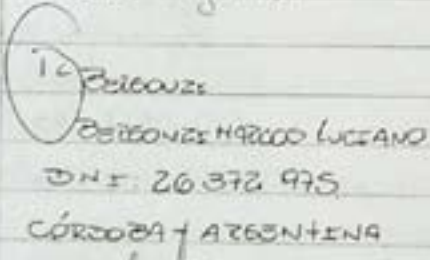 Tc Bergonzi
Bergonzi Marcoo Luciano
DNI: 26 372 975
Córdoba, Argentina